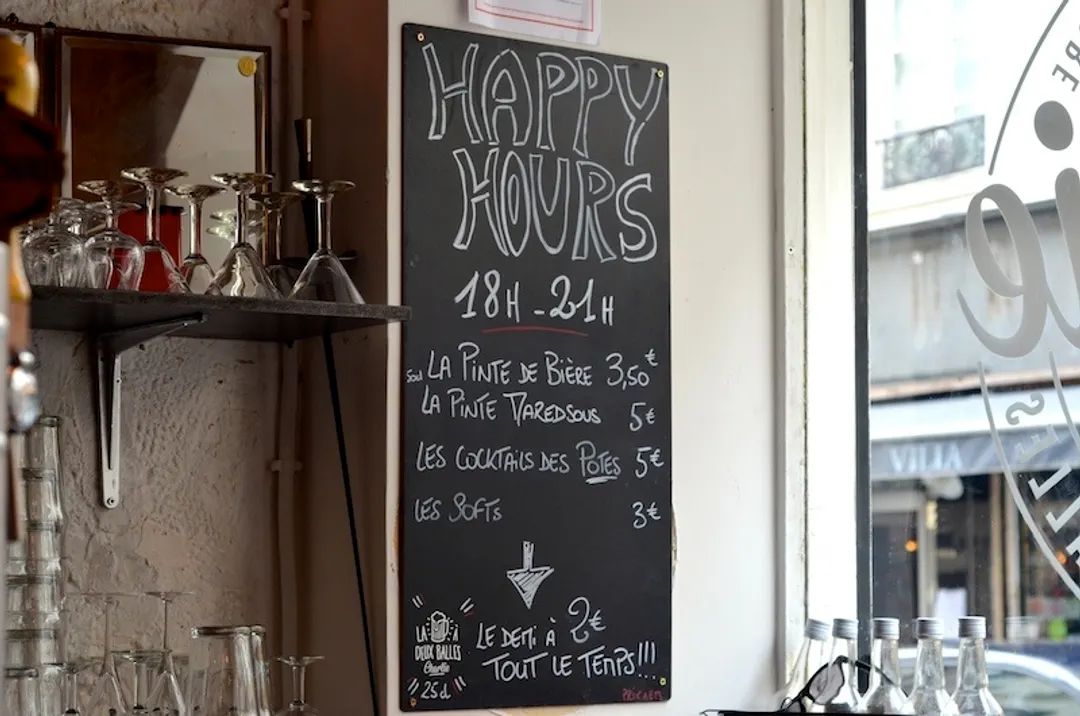 HAPPY
HOURS
18H - 21H
LA PINTE DE BIÈRE 3,50€
LA PINTE MAREDSOUS 5€
LES COCKTAILS DES POTES 5€
LES SOFTS 3€
LE DEMI À 2€
TOUT LE TEMPS!!!
LA À
DEUX BALLES
Charlie
25cl
VILIA